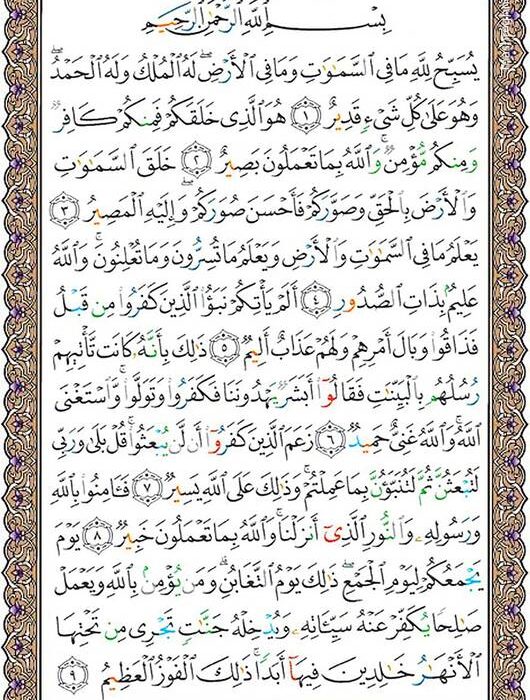 بِسْمِ ٱللَّهِ ٱلرَّحْمَٰنِ ٱلرَّحِيمِ
يُسَبِّحُ لِلَّهِ مَا فِي ٱلسَّمَٰوَٰتِ وَمَا فِي ٱلْأَرْضِۖ لَهُ ٱلْمُلْكُ وَلَهُ ٱلْحَمْدُۖ
وَهُوَ عَلَىٰ كُلِّ شَيْءٍ قَدِيرٌ ١ هُوَ ٱلَّذِي خَلَقَكُمْ فَمِنكُمْ كَافِرٌ
وَمِنكُم مُّؤْمِنٌۚ وَٱللَّهُ بِمَا تَعْمَلُونَ بَصِيرٌ ٢ خَلَقَ ٱلسَّمَٰوَٰتِ
وَٱلْأَرْضَ بِٱلْحَقِّ وَصَوَّرَكُمْ فَأَحْسَنَ صُوَرَكُمْۖ وَإِلَيْهِ ٱلْمَصِيرُ ٣
يَعْلَمُ مَا فِي ٱلسَّمَٰوَٰتِ وَٱلْأَرْضِ وَيَعْلَمُ مَا تُسِرُّونَ وَمَا تُعْلِنُونَۚ وَٱللَّهُ
عَلِيمٌۢ بِذَاتِ ٱلصُّدُورِ ٤ أَلَمْ يَأْتِكُمْ نَبَؤُا۟ ٱلَّذِينَ كَفَرُوا۟ مِن قَبْلُ
فَذَاقُوا۟ وَبَالَ أَمْرِهِمْ وَلَهُمْ عَذَابٌ أَلِيمٌ ٥ ذَٰلِكَ بِأَنَّهُۥ كَانَت تَّأْتِيهِمْ
رُسُلُهُم بِٱلْبَيِّنَٰتِ فَقَالُوٓا۟ أَبَشَرٌ يَهْدُونَنَا فَكَفَرُوا۟ وَتَوَلَّوا۟ۚ وَّٱسْتَغْنَى
ٱللَّهُۚ وَٱللَّهُ غَنِيٌّ حَمِيدٌ ٦ زَعَمَ ٱلَّذِينَ كَفَرُوٓا۟ أَن لَّن يُبْعَثُوا۟ۚ قُلْ بَلَىٰ وَرَبِّي
لَتُبْعَثُنَّ ثُمَّ لَتُنَبَّؤُنَّ بِمَا عَمِلْتُمْۚ وَذَٰلِكَ عَلَى ٱللَّهِ يَسِيرٌ ٧ فَـَٔامِنُوا۟ بِٱللَّهِ
وَرَسُولِهِۦ وَٱلنُّورِ ٱلَّذِيٓ أَنزَلْنَاۚ وَٱللَّهُ بِمَا تَعْمَلُونَ خَبِيرٌ ٨ يَوْمَ
يَجْمَعُكُمْ لِيَوْمِ ٱلْجَمْعِۖ ذَٰلِكَ يَوْمُ ٱلتَّغَابُنِۗ وَمَن يُؤْمِنۢ بِٱللَّهِ وَيَعْمَلْ
صَٰلِحًا يُكَفِّرْ عَنْهُ سَيِّـَٔاتِهِۦ وَيُدْخِلْهُ جَنَّٰتٍ تَجْرِي مِن تَحْتِهَا
ٱلْأَنْهَٰرُ خَٰلِدِينَ فِيهَآ أَبَدًاۚ ذَٰلِكَ ٱلْفَوْزُ ٱلْعَظِيمُ ٩